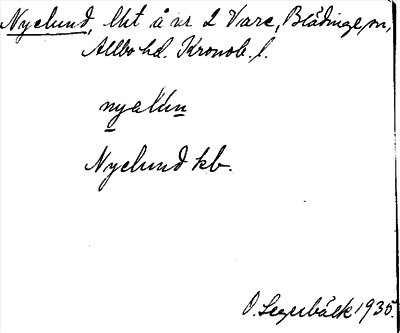 Nyelund, lht å nr 2 Vare, Blädinge sn,
Allbo hd. Kronob. l.
nyalún
Nyelund kb.
O. Segerbäck 1935.